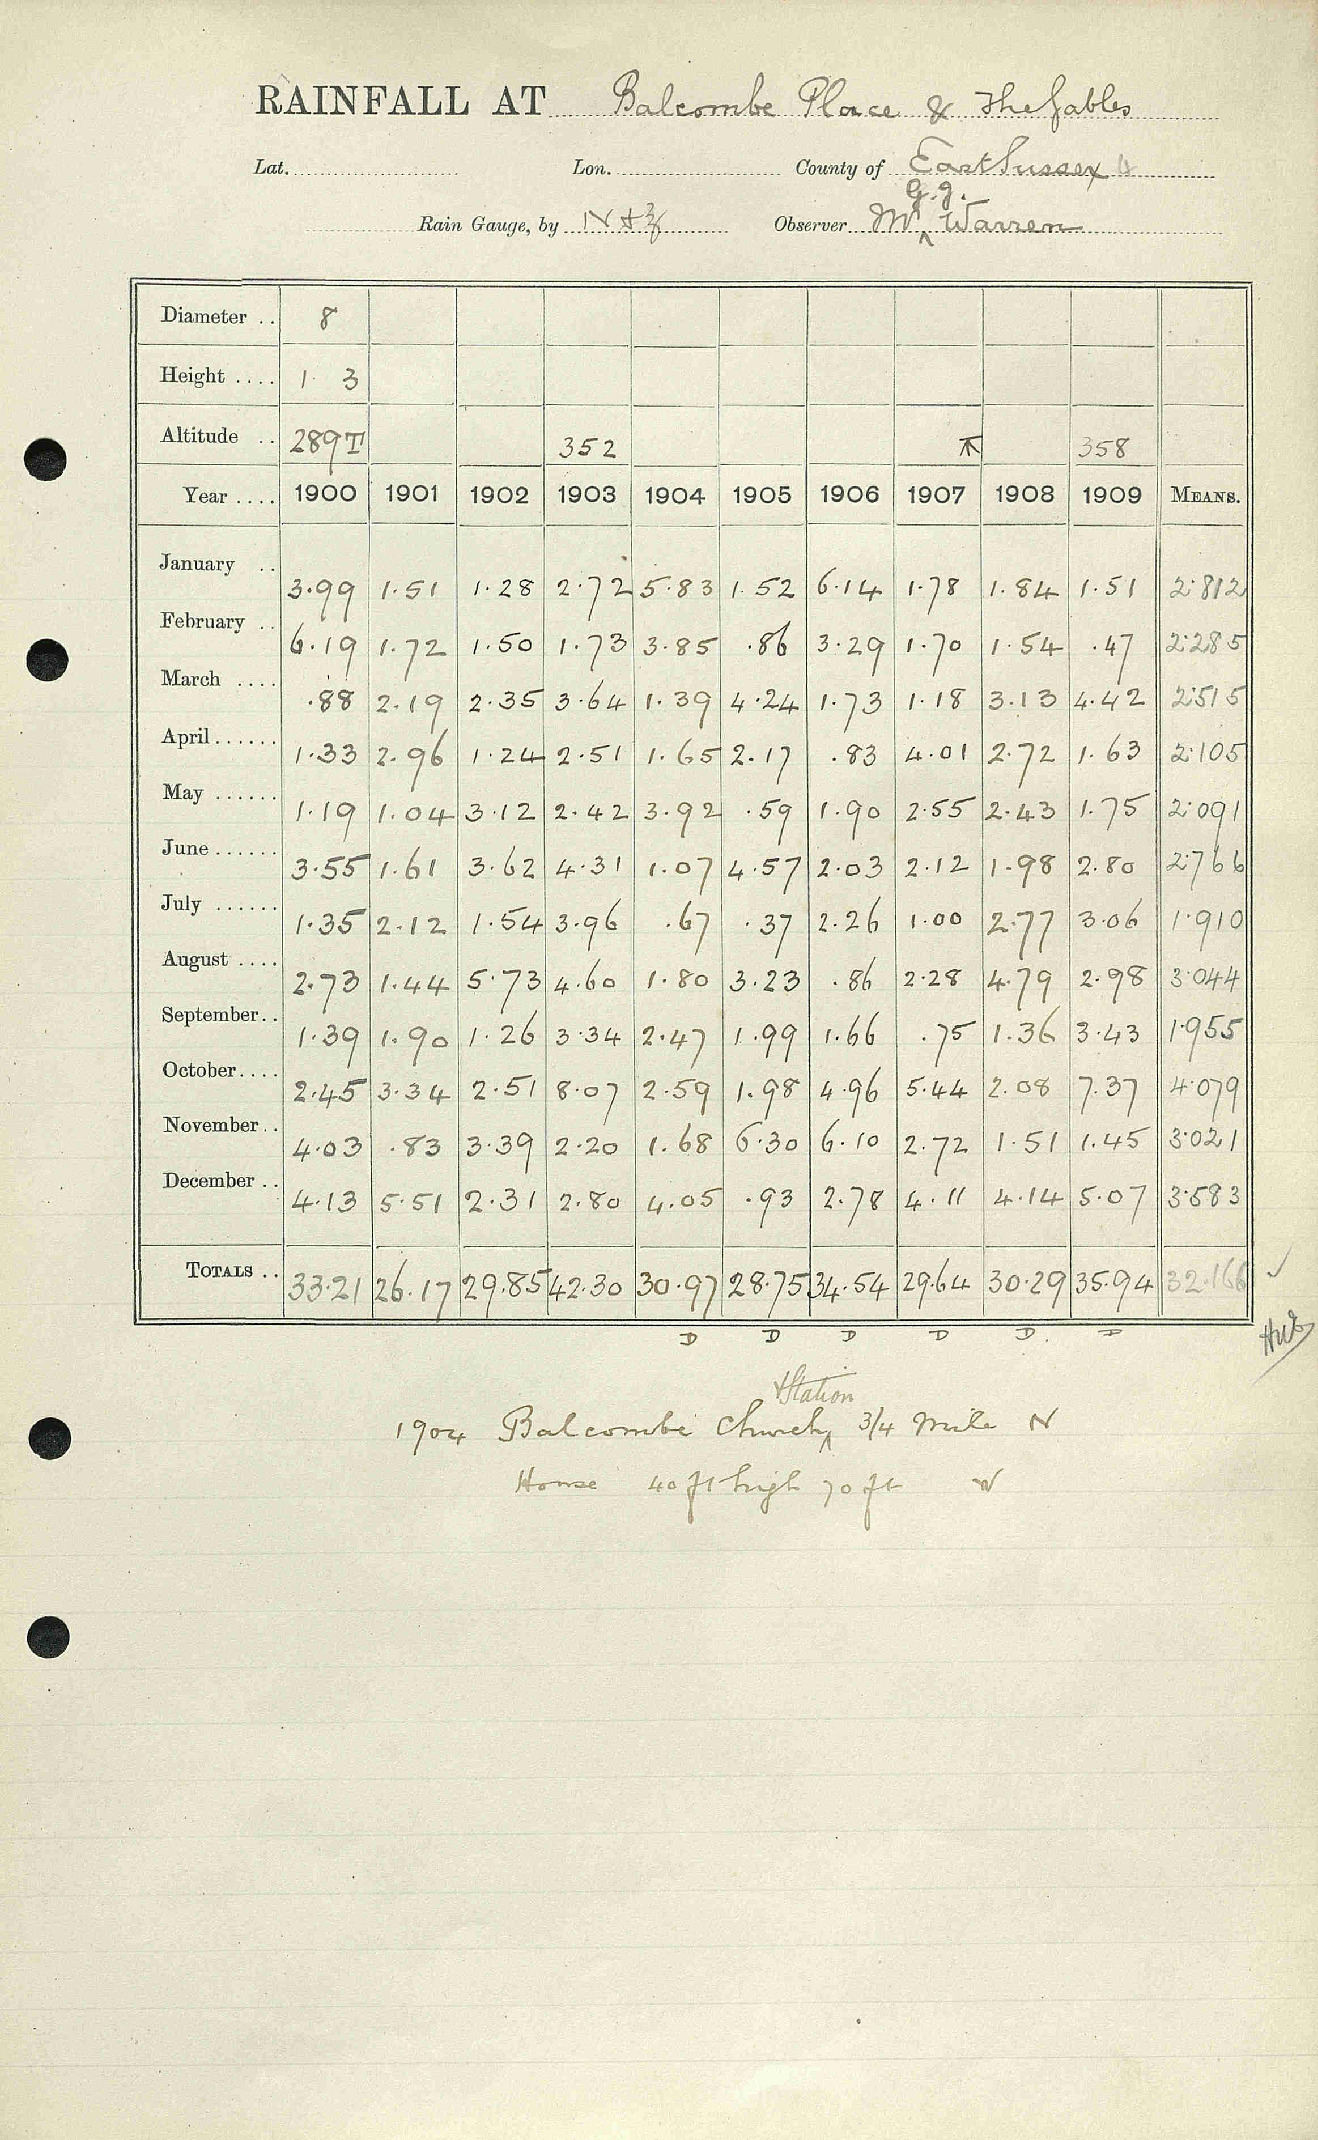 RAINFALL AT Balcombe Place & The Gables
Lat. Lon. County of East Sussex
G. J.
Rain Gauge, by N & Z Observer Mr Warren
Diameter .. 8
Height .... 1 3
Altitude .. 289 T 352 358
Year .... 1900 1901 1902 1903 1904 1905 1906 1907 1908 1909 MEANS.
January .. 3.99 1.51 1.28 2.72 5.83 1.52 6.14 1.78 1.84 1.51 2.812
February .. 6.19 1.72 1.50 1.73 3.85 .86 3.29 1.70 1.54 .47 2.285
March .... .88 2.19 2.35 3.64 1.39 4.24 1.73 1.18 3.13 4.42 2.515
April...... 1.33 2.96 1.24 2.51 1.65 2.17 .83 4.01 2.72 1.63 2.105
May ...... 1.19 1.04 3.12 2.42 3.92 .59 1.90 2.55 2.43 1.75 2.091
June...... 3.55 1.61 3.62 4.31 1.07 4.57 2.03 2.12 1.98 2.80 2.766
July ...... 1.35 2.12 1.54 3.96 .67 .37 2.26 1.00 2.77 3.06 1.910
August .... 2.73 1.44 5.73 4.60 1.80 3.23 .86 2.28 4.79 2.98 3.044
September.. 1.39 1.90 1.26 3.34 2.47 1.99 1.66 .75 1.36 3.43 1.955
October.... 2.45 3.34 2.51 8.07 2.59 1.98 4.96 5.44 2.08 7.37 4.079
November.. 4.03 .83 3.39 2.20 1.68 6.30 6.10 2.72 1.51 1.45 3.021
December .. 4.13 5.51 2.31 2.80 4.05 .93 2.78 4.11 4.14 5.07 3.583
TOTALS .. 33.21 26.17 29.85 42.30 30.97 28.75 34.54 29.64 30.29 35.94 32.166
D D D D D.
& Station
1904 Balcombe Church 3/4 Mile N
House 40 ft high 70 ft W